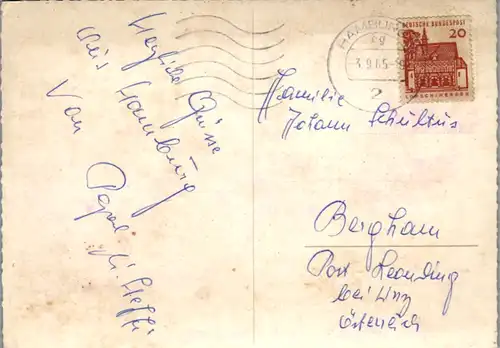 Herzliche Grüsse
aus Hamburg
Von
Papa u. Steffi
HAMBURG
3.9.65
2
DEUTSCHE BUNDESPOST
20
Familie
Johann Schultus
Bergham
Post Leonding
bei Linz
Österreich